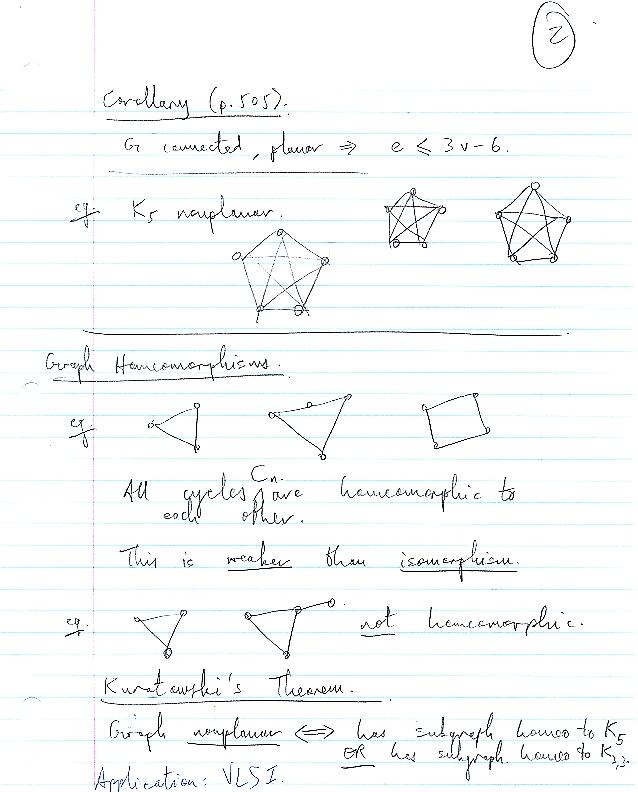 2
Corollary (p.505).
G connected, planar ⇒ e ≤ 3v-6.
eg. K5 nonplanar.
Graph Homeomorphisms.
eg
All cycles Cn are homeomorphic to
each other.
This is weaker than isomorphism.
eg. not homeomorphic.
Kuratowski's Theorem.
Graph nonplanar ⇔ has subgraph homeo to K5
OR has subgraph homeo to K3,3.
Application: VLSI.